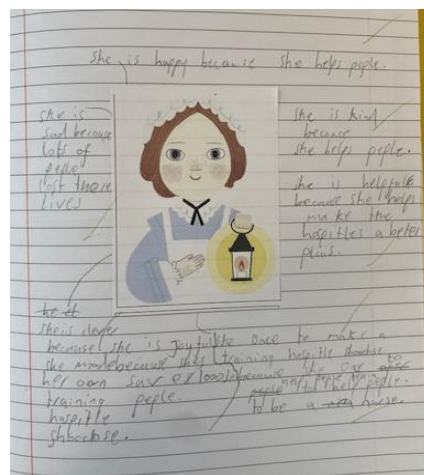 She is happy because she helps peple.
she is
sad because
lots of
peple
lost there
lives
she is kind
because
she helps peple.
she is helpfule
because she helps
make the
hospitles a beter
plais.
she is clever
because
she made
her own
training
hospitle
shboolse.
she is joyful
because she
sav ex1000s
peple.
she once to make a
training hospitle
because she
to help peple.
to be a nurse.